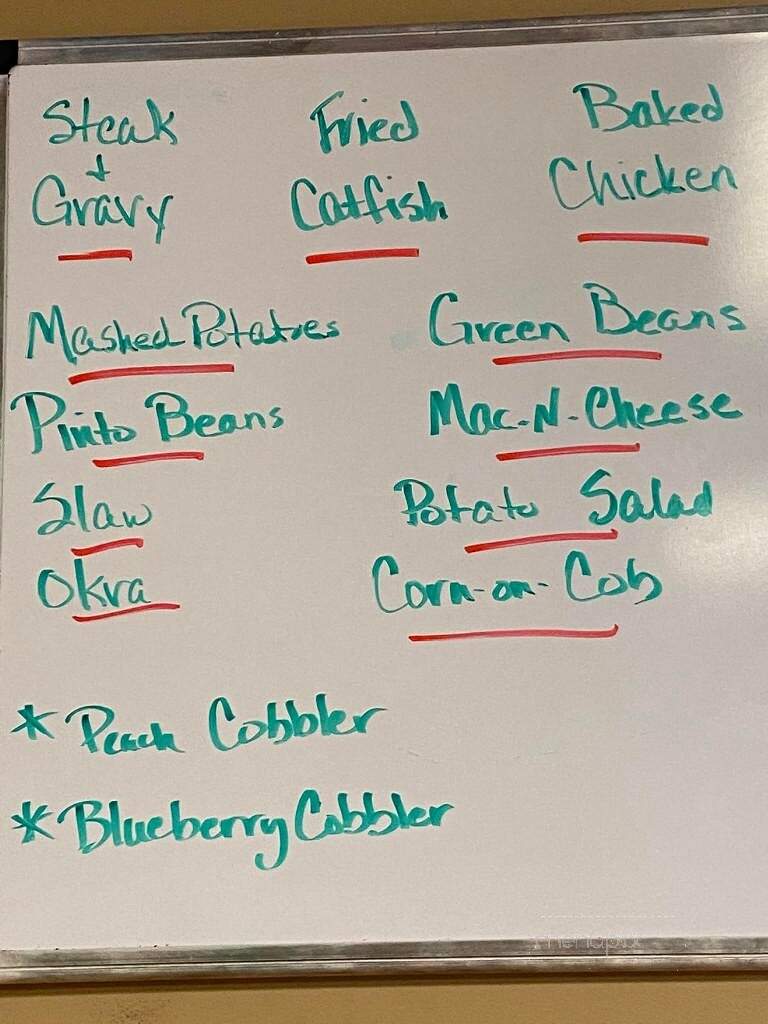 Steak Fried Baked
& Gravy Catfish Chicken
Mashed Potatoes Green Beans
Pinto Beans Mac-N-Cheese
Slaw Potato Salad
Okra Corn-on-Cob
* Peach Cobbler
* Blueberry Cobbler
menupix